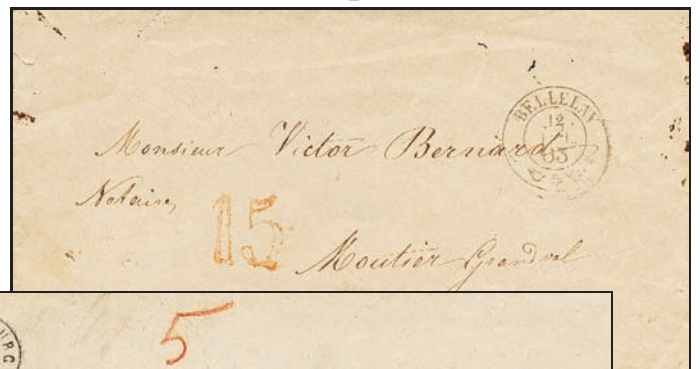 BELLELAY
12
63
Monsieur Victor Bernard
Notaire,
15
Moutier Grandval
5
URG